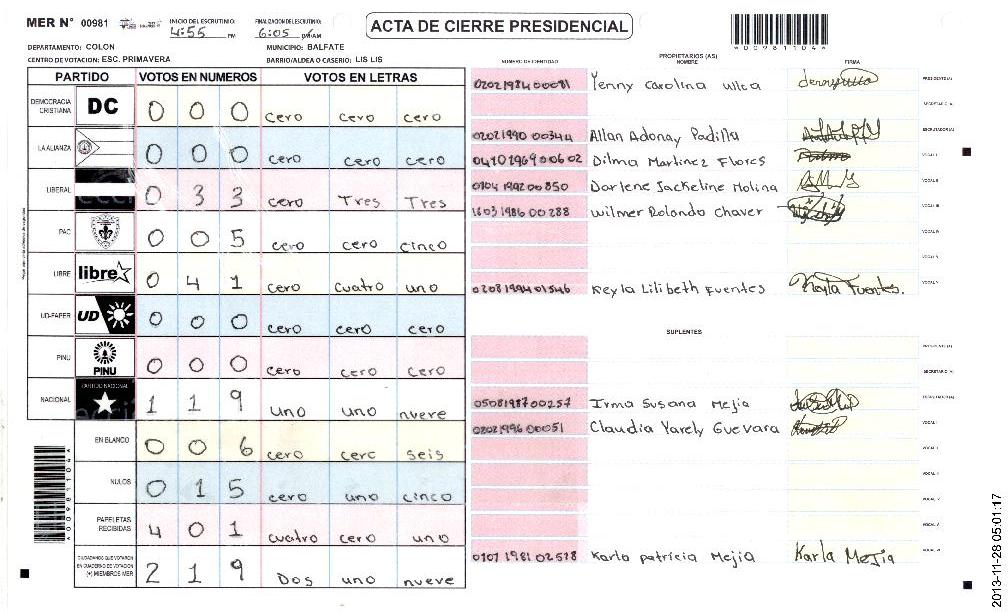 MER N° 00981
INICIO DEL ESCRUTINIO: 4:55 PM
FINALIZACION DEL ESCRUTINIO: 6:05
ACTA DE CIERRE PRESIDENCIAL
A00981104A
DEPARTAMENTO: COLON
MUNICIPIO: BALFATE
CENTRO DE VOTACION: ESC. PRIMAVERA
BARRIO/ALDEA O CASERIO: LIS LIS
PARTIDO VOTOS EN NUMEROS VOTOS EN LETRAS
DEMOCRACIA CRISTIANA DC 0 0 0 cero cero cero
LA ALIANZA 0 0 0 cero cero cero
LIBERAL 0 3 3 cero Tres Tres
PAC 0 0 5 cero cero cinco
LIBRE libre 0 4 1 cero cuatro uno
UD-FAPER UD 0 0 0 cero cero cero
PINU PINU 0 0 0 cero cero cero
NACIONAL PARTIDO NACIONAL 1 1 9 uno uno nueve
EN BLANCO 0 0 6 cero cerc seis
NULOS 0 1 5 cero uno cinco
PAPELETAS RECIBIDAS 4 0 1 cuatro cero uno
CIUDADANOS QUE VOTARON EN CUADERNO DE VOTACION (+) MIEMBROS MER 2 1 9 Dos uno nueve
A00981104A
NUMERO DE IDENTIDAD PROPIETARIOS (AS) NOMBRE FIRMA
0202198400081 Yenny Carolina PRESIDENTE (A)
SECRETARIO (A)
0202199000344 Allan Adonay Padilla ESCRUTADOR (A)
0410196900602 Dilma Martinez Flores VOCAL I
0104199200850 Darlene Jackeline Molina VOCAL II
1603198600288 Wilmer Rolando Chaver VOCAL III
VOCAL IV
0208199401546 Keyla Lilibeth Fuentes Keyla Fuentes. VOCAL V
SUPLENTES
PRESIDENTE (A)
SECRETARIO (A)
0508198700257 Irma Susana Mejia ESCRUTADOR (A)
0202199600051 Claudia Yarely Guevara VOCAL I
VOCAL II
VOCAL III
VOCAL IV
VOCAL V
0107198102518 Karla patricia Mejia Karla Mejia VOCAL VI
2013-11-28 05:01:17